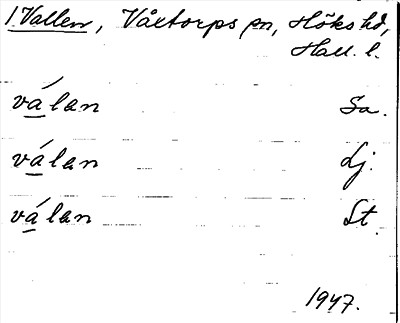 1. Vallen, Våxtorps sn, Höks hd,
Hall. l.
válan Sa.
válan Lj.
válan St.
1947.